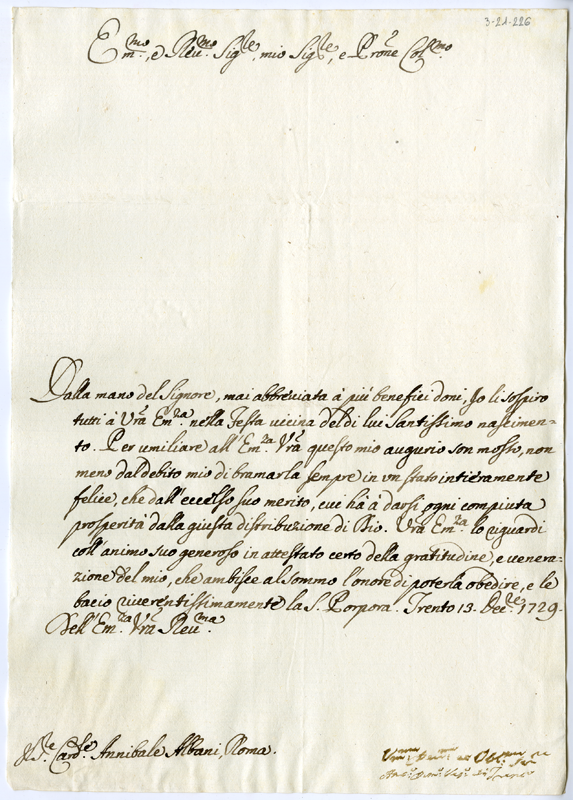 3-21-226
Em.mo, e Reu.mo Sig.re, mio Sig.re, e Prone Col.mo
Dalla mano del Signore, mai abbreviata à più benefici doni, Io li sospiro
tutti à Vrã Em.za nella Festa vicina del di lui Santissimo nascimen=
to. Per umiliare all' Em.za Vrã questo mio augurio son mosso, non
meno dal debito mio di bramarla sempre in un stato intieramente
felice, che dall' eccelso suo merito, cui hà à darsi ogni compiuta
prosperità dalla giusta distribuzione di Dio. Vrã Em.za lo riguardi
coll' animo suo generoso in attestato certo della gratitudine, e venera=
zione del mio, che ambisce al sommo l'onore di poterla obedire, e le
bacio riverentissimamente la S. Porpora. Trento 13. Dec.re 1729.
Dell' Em.za Vrã Reu.ma
S.re Card.le Annibale Albani, Roma.